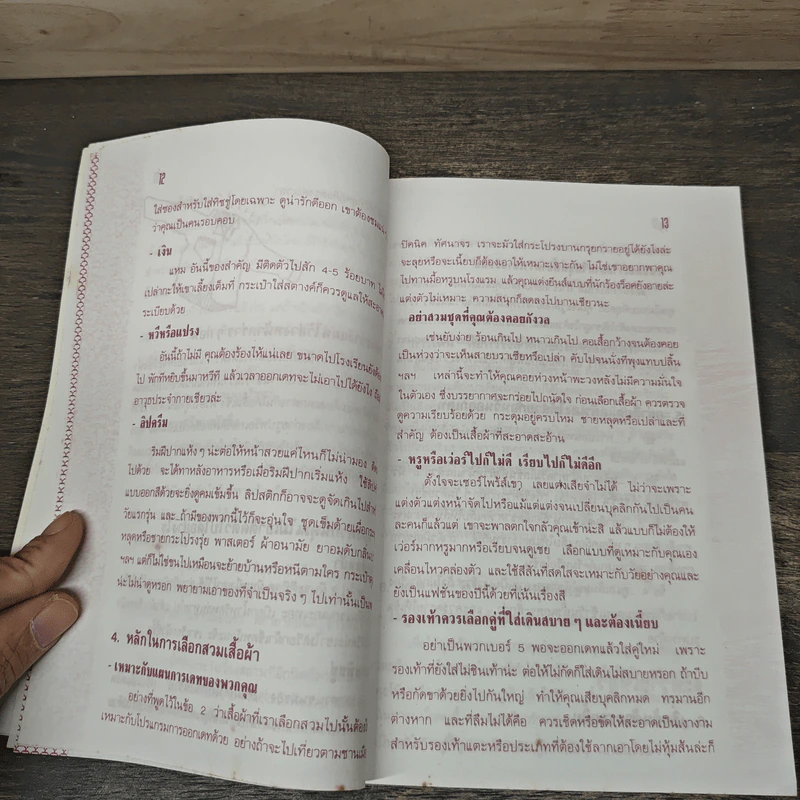 12
ใส่ซองสำหรับใส่ทิชชูโดยเฉพาะ ดูน่ารักดีออก เขาต้องชม
ว่าคุณเป็นคนรอบคอบ
- เงิน
แหม อันนี้ของสำคัญ มีติดตัวไปสัก 4-5 ร้อยบาท
เปล่ากะให้เขาเลี้ยงเต็มที่ กระเป๋าใส่สตางค์ก็ควรดูแลให้
ระเบียบด้วย
- หวีหรือแปรง
อันนี้ถ้าไม่มี คุณต้องร้องไห้แน่เลย ขนาดไปโรงเรียนยัง
ไป พักทีหยิบขึ้นมาหวีที แล้วเวลาออกเดทจะไม่เอาไปได้ยังไง
อาวุธประจำกายเชียวล่ะ
- ลิปครีม
ริมฝีปากแห้ง ๆ น่ะต่อให้หน้าสวยแค่ไหนก็ไม่น่ามอง
ไปด้วย จะได้ทาหลังอาหารหรือเมื่อริมฝีปากเริ่มแห้ง
แบบออกสีด้วยจะยิ่งดูคมเข้มขึ้น ลิปสติกก็อาจจะดูจัดเกินไปสำ
วัยแรกรุ่น และ..ถ้ามีของพวกนี้ไว้ก็จะอุ่นใจ ชุดเข็มด้ายเผื่อกระ
หลุดหรือชายกระโปรงรุ่ย พาสเตอร์ ผ้าอนามัย ยาอมดับกลิ่น
ฯลฯ แต่ก็ไม่ใช่ขนไปเหมือนจะย้ายบ้านหรือหนีตามใคร กระเป๋า
น่ะไม่น่าดูหรอก พยายามเอาของที่จำเป็นจริง ๆ ไปเท่านั้นเป็น
4. หลักในการเลือกสวมเสื้อผ้า
- เหมาะกับแผนการเดทของพวกคุณ
อย่างที่พูดไว้ในข้อ 2 ว่าเสื้อผ้าที่เราเลือกสวมไปนั้นต้อง
เหมาะกับโปรแกรมการออกเดทด้วย อย่างถ้าจะไปเที่ยวตามชาน
13
ปิคนิค ทัศนาจร เราจะมัวใส่กระโปรงบานกรุยกรายอยู่ได้ยังไงล่ะ
จะลุยหรือจะเนี้ยบก็ต้องเอาให้เหมาะเจาะกัน ไม่ใช่เขาอยากพาคุณ
ไปทานมื้อหรูบนโรงแรม แล้วคุณแต่งยีนส์แบบที่นักร้องร็อคยังอายล่ะ
แต่งตัวไม่เหมาะ ความสนุกก็ลดลงไปบานเชียวนะ
อย่าสวมชุดที่คุณต้องคอยกังวล
เช่นยับง่าย ร้อนเกินไป หนาวเกินไป คอเสื้อกว้างจนต้องคอย
เป็นห่วงว่าจะเห็นสายบราเซียหรือเปล่า คับไปจนนั่งทีพุงแทบปลิ้น
ฯลฯ เหล่านี้จะทำให้คุณคอยห่วงหน้าพะวงหลังไม่มีความมั่นใจ
ในตัวเอง ซึ่งบรรยากาศจะกร่อยไปถนัดใจ ก่อนเลือกเสื้อผ้า ควรตรวจ
ดูความเรียบร้อยด้วย กระดุมอยู่ครบไหม ชายหลุดหรือเปล่าและที่
สำคัญ ต้องเป็นเสื้อผ้าที่สะอาดสะอ้าน
- หรูหรือเว่อร์ไปก็ไม่ดี เรียบไปก็ไม่ดีอีก
ตั้งใจจะเซอร์ไพร้ส์เขา เลยแต่งเสียจำไม่ได้ ไม่ว่าจะเพราะ
แต่งตัวแต่งหน้าจัดไปหรือแม้แต่แต่งจนเปลี่ยนบุคลิกกันไปเป็นคน
ละคนก็แล้วแต่ เขาจะพาลตกใจกลัวคุณเข้าน่ะสิ แล้วแบบก็ไม่ต้องให้
เว่อร์มากหรูมากหรือเรียบจนดูเชย เลือกแบบที่ดูเหมาะกับคุณเอง
เคลื่อนไหวคล่องตัว และใช้สีสันที่สดใสจะเหมาะกับวัยอย่างคุณและ
ยังเป็นแฟชั่นของปีนี้ด้วยที่เน้นเรื่องสี
- รองเท้าควรเลือกคู่ที่ใส่เดินสบาย ๆ และต้องเนี้ยบ
อย่าเป็นพวกเบอร์ 5 พอจะออกเดทแล้วใส่คู่ใหม่ เพราะ
รองเท้าที่ยังใส่ไม่ชินเท้าน่ะ ต่อให้ไม่กัดก็ใส่เดินไม่สบายหรอก ถ้าบีบ
หรือกัดขาด้วยยิ่งไปกันใหญ่ ทำให้คุณเสียบุคลิกหมด ทรมานอีก
ต่างหาก และที่ลืมไม่ได้คือ ควรเช็ดหรือขัดให้สะอาดเป็นเงางาม
สำหรับรองเท้าแตะหรือประเภทที่ต้องใช้ลากเอาโดยไม่หุ้มส้นล่ะก็